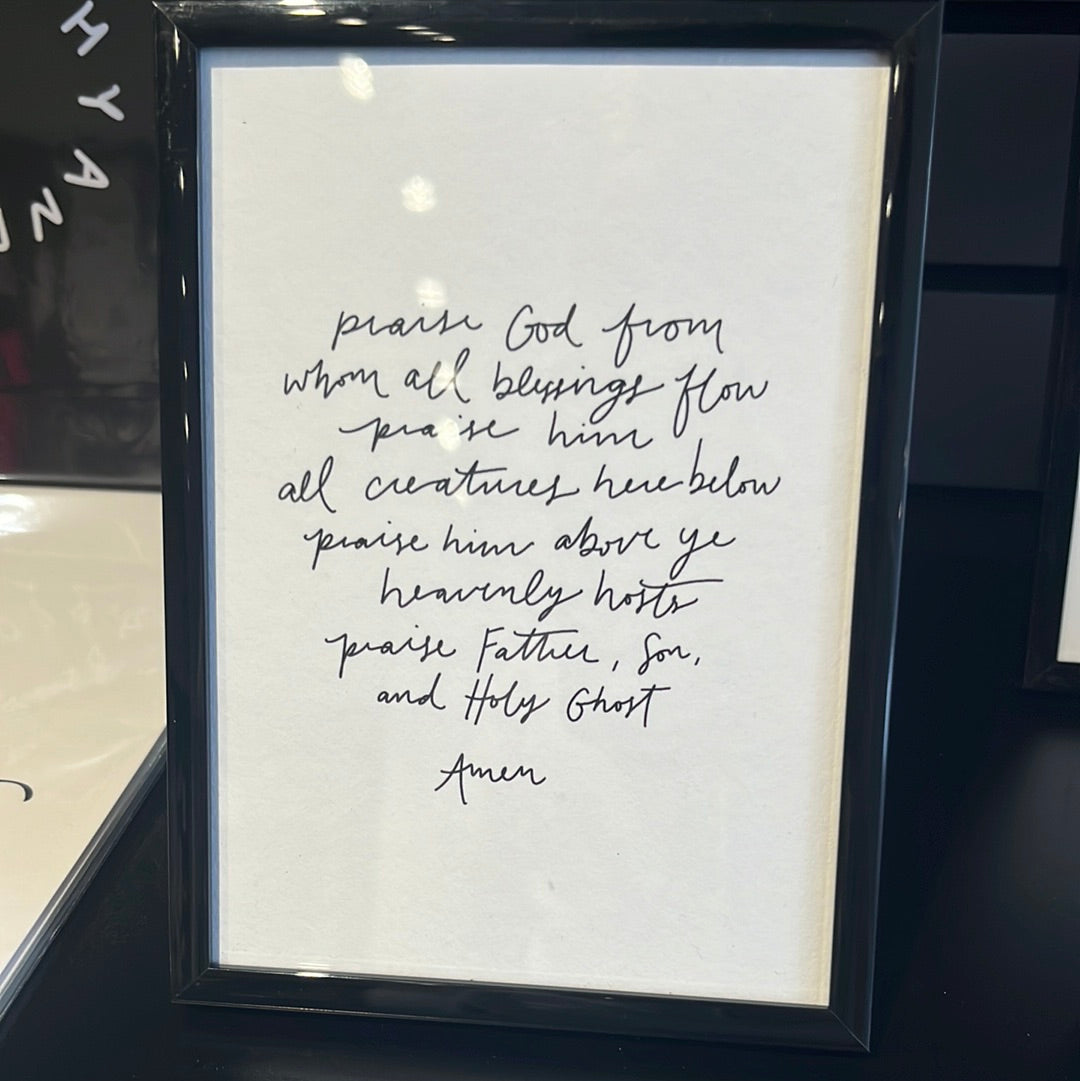 HYAN
praise God from
whom all blessings flow
praise him
all creatures here below
praise him above ye
heavenly hosts
praise Father, Son,
and Holy Ghost
Amen